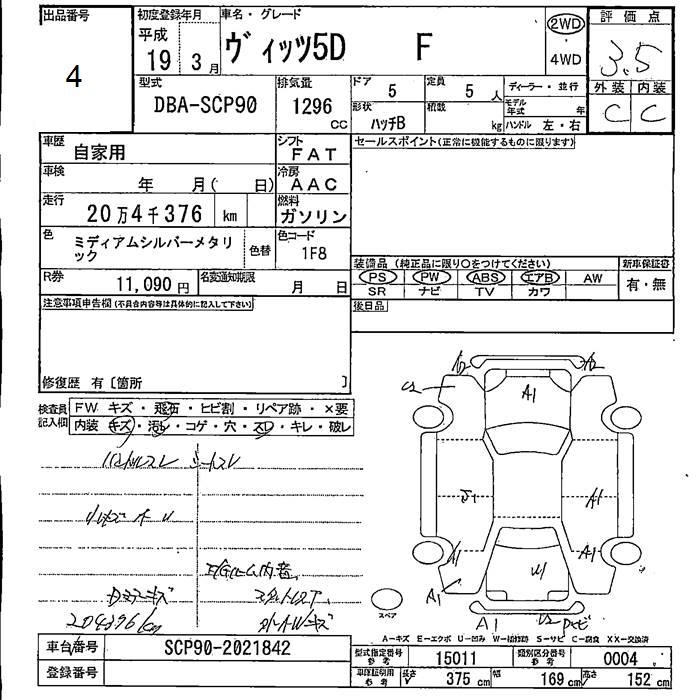 出品番号
4
初度登録年月
平成
19 3 月
車名・グレード
ヴィッツ5D F
2WD
4WD
評価点
3.5
外装 内装
C C
型式
DBA-SCP90
排気量
1296
CC
ドア 5
定員 5 人
形状 ハッチB
積載 kg
ディーラー・並行
モデル年式 年
ハンドル 左・右
車歴
自家用
シフト
FAT
セールスポイント(正常に機能するものに限ります)
車検
年 月( 日)
冷房
AAC
走行
20万4千376 km
燃料
ガソリン
色
ミディアムシルバーメタリック
色替
色コード
1F8
装備品 (純正品に限り○をつけてください)
新車保証書
PS PW ABS エアB AW
有・無
SR ナビ TV カワ
R券
11,090 円
名変通知期限
月 日
後日品
注意事項申告欄(不具合内容等は具体的に記入して下さい)
修復歴 有 [箇所 ]
検査員記入欄
FW キズ・飛石・ヒビ割・リペア跡・×要
内装 キズ・汚レ・コゲ・穴・スレ・キレ・破レ
ハンドルスレ シートスレ
204396km
A2 A2
A1
U2
A1
A1 A1
W1
A1
A1
U2
スペア
A-キズ E-エクボ U-凹み W-補修跡 S-サビ C-腐食 XX-交換済
車台番号
SCP90-2021842
型式指定番号
参考
15011
類別区分番号
参考
0004
登録番号
車庫証明用
参考
長さ 375 cm
幅 169 cm
高さ 152 cm